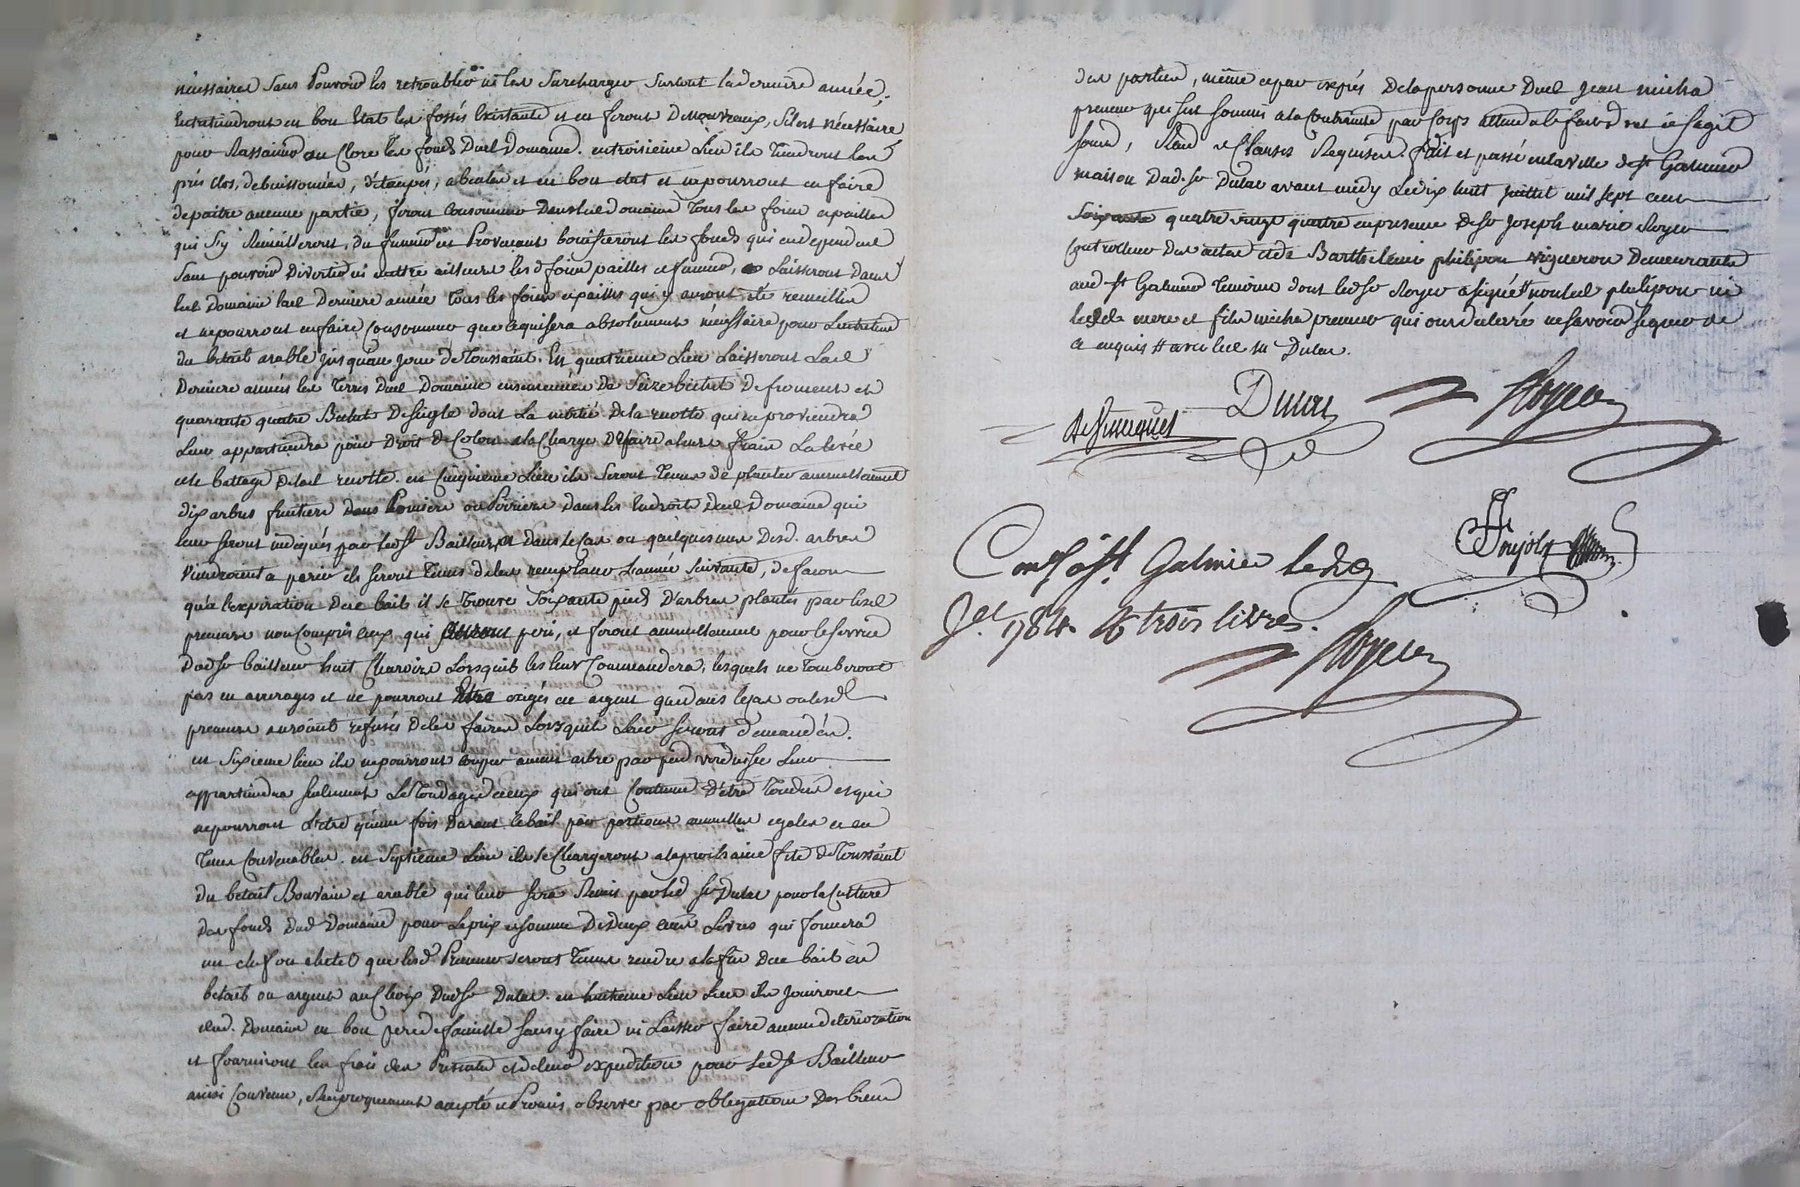 nécessaires sans Pouvoir les retroubler ni les Surcharger Surtout la derniere année,
Entretiendront en bon Etat les fossés Existants et en feront De nouveaux, s'il est nécessaire
pour Rassainir ou Clore les fonds Dud Domaine. en troisieme Lieu ils Tiendront les
prés Clos, debuissonnés, Etaupés, abealés et en bon etat et ne pourront en faire
depaitre aucune partie, feront Consommer Dans led domaine Tous les foins et pailles
qui s'y Recüilleront, du fumier en Provenant bonifieront les fonds qui en dependent
Sans pouvoir Divertir ni mettre ailleurs lesd foins pailles et fumier, Laisseront dans
led Domaine lad Derniere année Tous les foins et pailles qui y auront été recueillis
et ne pourront en faire Consommer que ce qui sera absolument nécessaire pour L'entretien
du betail arable jusqu'au jour de Toussaint. En quatrieme Lieu Laisseront Lad
Derniere année les Terres Dud Domaine ensemencées de Seize bichets de froment et
quarante quatre Bichets De seigle dont La moitié De la recolte qui en proviendra
Leur appartiendra pour Droit de Colon a la Charge De faire a leurs frais La levée
et le battage De lad recolte. en Cinquieme Lieu ils Seront Tenus de planter annuellement
dix arbres fruitiers Dans Pomiers ou Poiriers dans les Endroits Dud Domaine qui
leur seront indiqués par led Sr Bailleur, et dans le Cas ou quelques uns Desd. arbres
Viendroient a perir ils seront Tenus de les remplacer L'année Suivante, de facon
qu'a l'expiration De ce bail il se Trouve Soixante pieds D'arbres plantés par lesd
preneurs non Compris ceux qui seront peri, et feront annuellement pour le service
Dud Sr bailleur huit Charois Lorsqu'il les leur Commandera, lesquels ne Tomberont
pas en arrerages et ne pourront Etre exigés en argent que dans le Cas ou lesd
preneurs auroient refusés de les faire Lorsqu'ils Leur seront demandés.
en Sixieme lieu ils ne pourront Couper aucun arbre par pied vord ny sec Leur
appartiendra seulement Le Tondage de ceux qui ont Coutume D'etre Tondus et qui
ne pourront L'etre qu'une fois Durant le bail par portions annuelles egales et en
Tems Convenables. en Septieme Lieu ils se Chargeront a la prochaine fete de Toussaint
Du betail Bouvain et arable qui leur sera Remis par led Sr Dulac pour la Culture
Des fonds Dud Domaine pour Le prix et somme De Deux cent Livres qui formera
un chef ou chetel que lesd Preneurs seront Tenus rendre a la fin De ce bail en
betail ou argent au Choix Dud Sr Dulac. en huitieme Lieu Lieu ils Jouiront
dud. Domaine en bon pere de famille sans y faire ni Laisser faire aucune deterioration
et fourniront les frais des Presentes et de leur expedition pour led Sr Bailleur
ainsi Convenu, Reciproquement accepté et Promis observer par obligation Des biens
des parties, même et par exprés De la personne Dud Jean micha
preneur qui s'est soumis a la Contrainte par Corps attendu le fait dont il s'agit
soum, Ren et Clauses Requises. fait et passé en la ville de St Galmier
maison Dud. Sr Dulac avant midy Le dix huit juillet mil sept cent
Soixante quatre vingt quatre en presence De Sr Joseph marie Royer
Controlleur des actes et de Barthelemi philipon vigneron Demeurants
aud St Galmier Temoins dont led Sr Royer a signé et non led philipon ni
lesd mere et fils micha preneurs qui ont declaré ne savoir signer de
ce enquis et avec led Sr Dulac.
Dulac
Royer
Cont. a St Galmier le dix
Jet 1784. R trois livres.
Royer